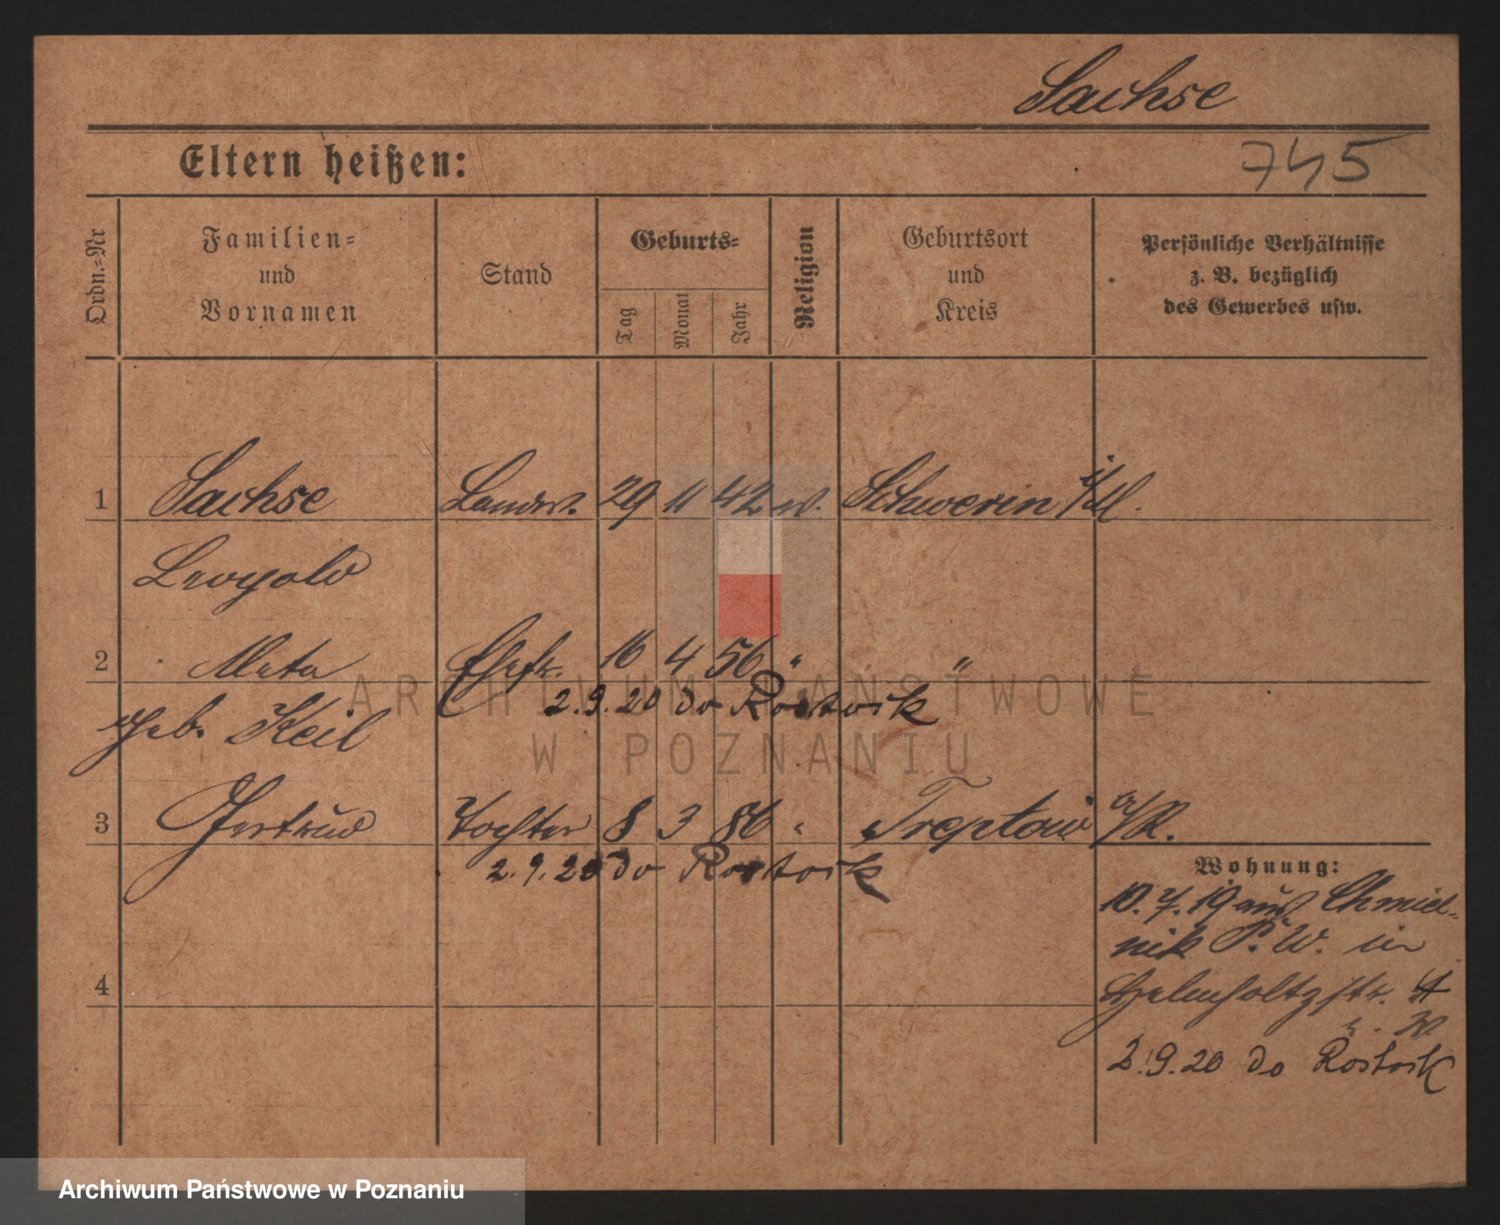 Sachse
Eltern heißen:
745
Ordn.-Nr
Familien-
und
Vornamen
Stand
Geburts-
Tag
Monat
Jahr
Religion
Geburtsort
und
Kreis
Persönliche Verhältnisse
z. B. bezüglich
des Gewerbes usw.
1 Sachse Landw. 29 11 42 w. Schwerin i/M.
Leopold
2 Meta Ehefr. 16 4 56 " "
2.9.20 do Rostock
geb. Keil
3 Gertrud Tochter 8 3 86 " Treptow a/R.
2.9.20 do Rostock
Wohnung:
10.7.19 aus Chmiel-
nik P. W. in
4
Helmholtzstr. 4
2.9.20 do Rostock
ARCHIWUM PAŃSTWOWE
W POZNANIU
Archiwum Państwowe w Poznaniu